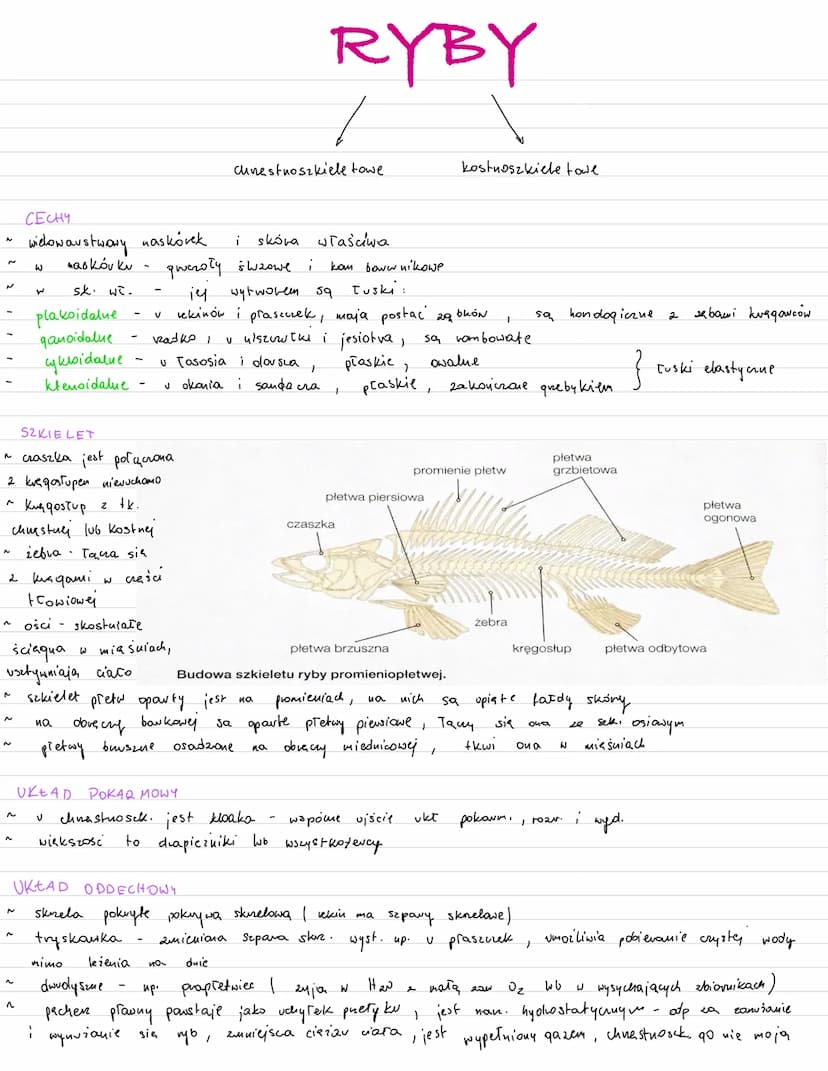 RYBY
chrzęstnoszkieletowe kostnoszkieletowe
CECHY
~ wielowarstwowy naskórek i skóra właściwa
~ w naskórku - gruczoły śluzowe i kom barwnikowe
~ w sk. wł. - jej wytworem są łuski:
- plakoidalne - u rekinów i płaszczek, mają postać ząbków, są homologiczne z zębami kręgowców
- ganoidalne - rzadko, u niszczułki i jesiotra, są rombowate
- cykloidalne - u łososia i dorsza, płaskie, owalne
- ktenoidalne - u okonia i sandacza, płaskie, zakończone grzebykiem } łuski elastyczne
SZKIELET
~ czaszka jest połączona
z kręgosłupem nieruchomo
~ kręgosłup z tk.
chrzęstnej lub kostnej
~ żebra - łączą się
z kręgami w części
tłowiowej
~ ości - skostniałe
ścięgna w mięśniach,
usztywniają ciało
płetwa grzbietowa
promienie płetw
płetwa piersiowa
płetwa ogonowa
czaszka
żebra
płetwa brzuszna
kręgosłup
płetwa odbytowa
Budowa szkieletu ryby promieniopłetwej.
~ szkielet płetw oparty jest na promieniach, na nich są opięte fałdy skórny
~ na obręczy barkowej są oparte płetwy piersiowe, łączy się ona ze szki. osiowym
~ płetwy brzuszne osadzone na obręczy miednicowej, tkwi ona w mięśniach
UKŁAD POKARMOWY
~ u chrzęstnoszk. jest kloaka - wspólne ujście ukł pokarm., rozr. i wyd.
~ większość to drapieżniki lub wszystkożercy
UKŁAD ODDECHOWY
~ skrzela pokryte pokrywą skrzelową (rekin ma szpary skrzelowe)
~ tryskawka - zmieniona szpara skrz. wyst. np. u płaszczek, umożliwia pobieranie czystej wody
mimo leżenia na dnie
~ dwudyszne - np. prapłetwiec (żyją w H2O z małą zaw O2 lub w wysychających zbiornikach)
~ pęcherz pławny powstaje jako uchyłek przełyku, jest narz. hydrostatycznym - odp za zanurzanie
i wynurzanie się ryb, zmniejsza ciężar ciała, jest wypełniony gazem, chrzęstnoszk. go nie mają